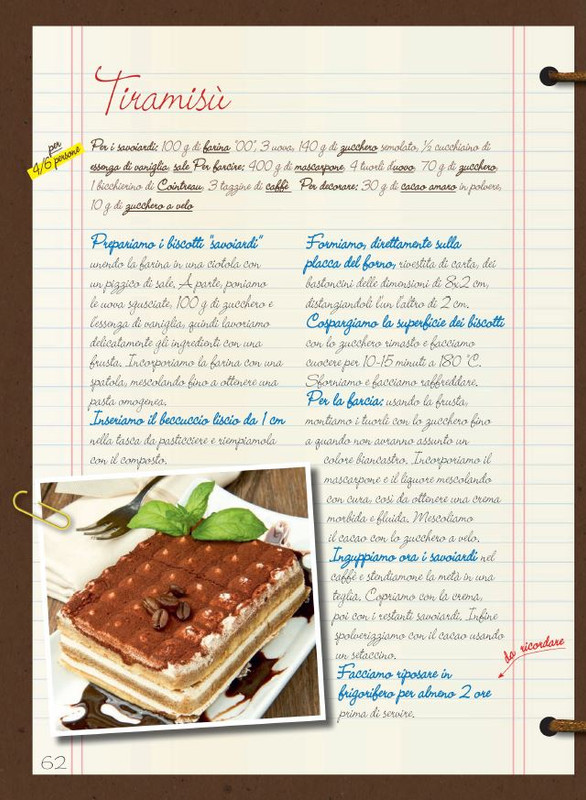 Tiramisù
per
4/6 persone
Per i savoiardi: 100 g di farina "00", 3 uova, 140 g di zucchero semolato, ½ cucchiaino di
essenza di vaniglia, sale Per farcire: 400 g di mascarpone, 4 tuorli d'uovo, 70 g di zucchero,
1 bicchierino di Cointreau, 3 tazzine di caffè Per decorare: 30 g di cacao amaro in polvere,
10 g di zucchero a velo
Prepariamo i biscotti "savoiardi"
unendo la farina in una ciotola con
un pizzico di sale. A parte, poniamo
le uova sgusciate, 100 g di zucchero e
l'essenza di vaniglia, quindi lavoriamo
delicatamente gli ingredienti con una
frusta. Incorporiamo la farina con una
spatola, mescolando fino a ottenere una
pasta omogenea.
Inseriamo il beccuccio liscio da 1 cm
nella tasca da pasticciere e riempiamola
con il composto.
Formiamo, direttamente sulla
placca del forno, rivestita di carta, dei
bastoncini delle dimensioni di 8x2 cm,
distanziandoli l'un l'altro di 2 cm.
Cospargiamo la superficie dei biscotti
con lo zucchero rimasto e facciamo
cuocere per 10-15 minuti a 180 °C.
Sforniamo e facciamo raffreddare.
Per la farcia: usando la frusta,
montiamo i tuorli con lo zucchero fino
a quando non avranno assunto un
colore biancastro. Incorporiamo il
mascarpone e il liquore mescolando
con cura, così da ottenere una crema
morbida e fluida. Mescoliamo
il cacao con lo zucchero a velo.
Inzuppiamo ora i savoiardi nel
caffè e stendiamone la metà in una
teglia. Copriamo con la crema,
poi con i restanti savoiardi. Infine
spolverizziamo con il cacao usando
un setaccino.
da ricordare
Facciamo riposare in
frigorifero per almeno 2 ore
prima di servire.
62